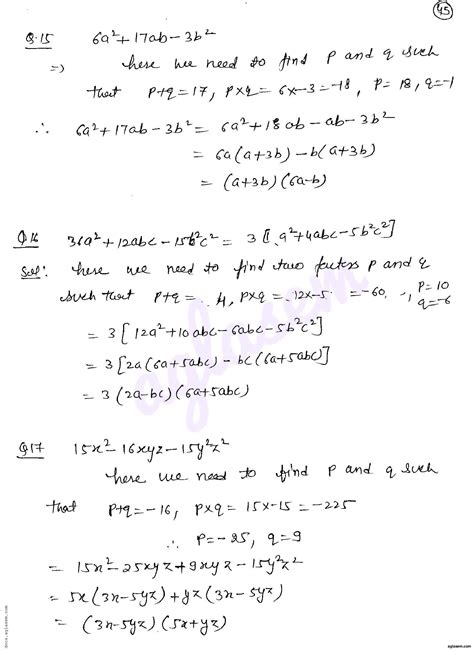 45
Q.15 6a²+17ab-3b²
=) here we need to find p and q such
that p+q=17, p×q = 6×-3=-18, p=18, q=-1
∴ 6a²+17ab-3b² = 6a²+18ab-ab-3b²
= 6a(a+3b)-b(a+3b)
= (a+3b)(6a-b)
Q.16 36a²+12abc-15b²c² = 3[ a²+4abc-5b²c²]
Sol: here we need to find two factors p and q
such that p+q= 4, p×q = 12×-5 =-60 ∴ p=10
q=-6
= 3[12a²+10abc-6abc-5b²c²]
= 3[2a(6a+5abc)-bc(6a+5abc)]
= 3(2a-bc)(6a+5abc)
Q17 15x²-16xyz-15y²z²
here we need to find p and q such
that p+q=-16, p×q = 15×-15=-225
∴ p=-25, q=9
= 15x²-25xyz+9xyz-15y²z²
= 5x(3x-5yz)+yz(3x-5yz)
= (3x-5yz)(5x+yz)
aglasem
docs.aglasem.com
aglasem.com